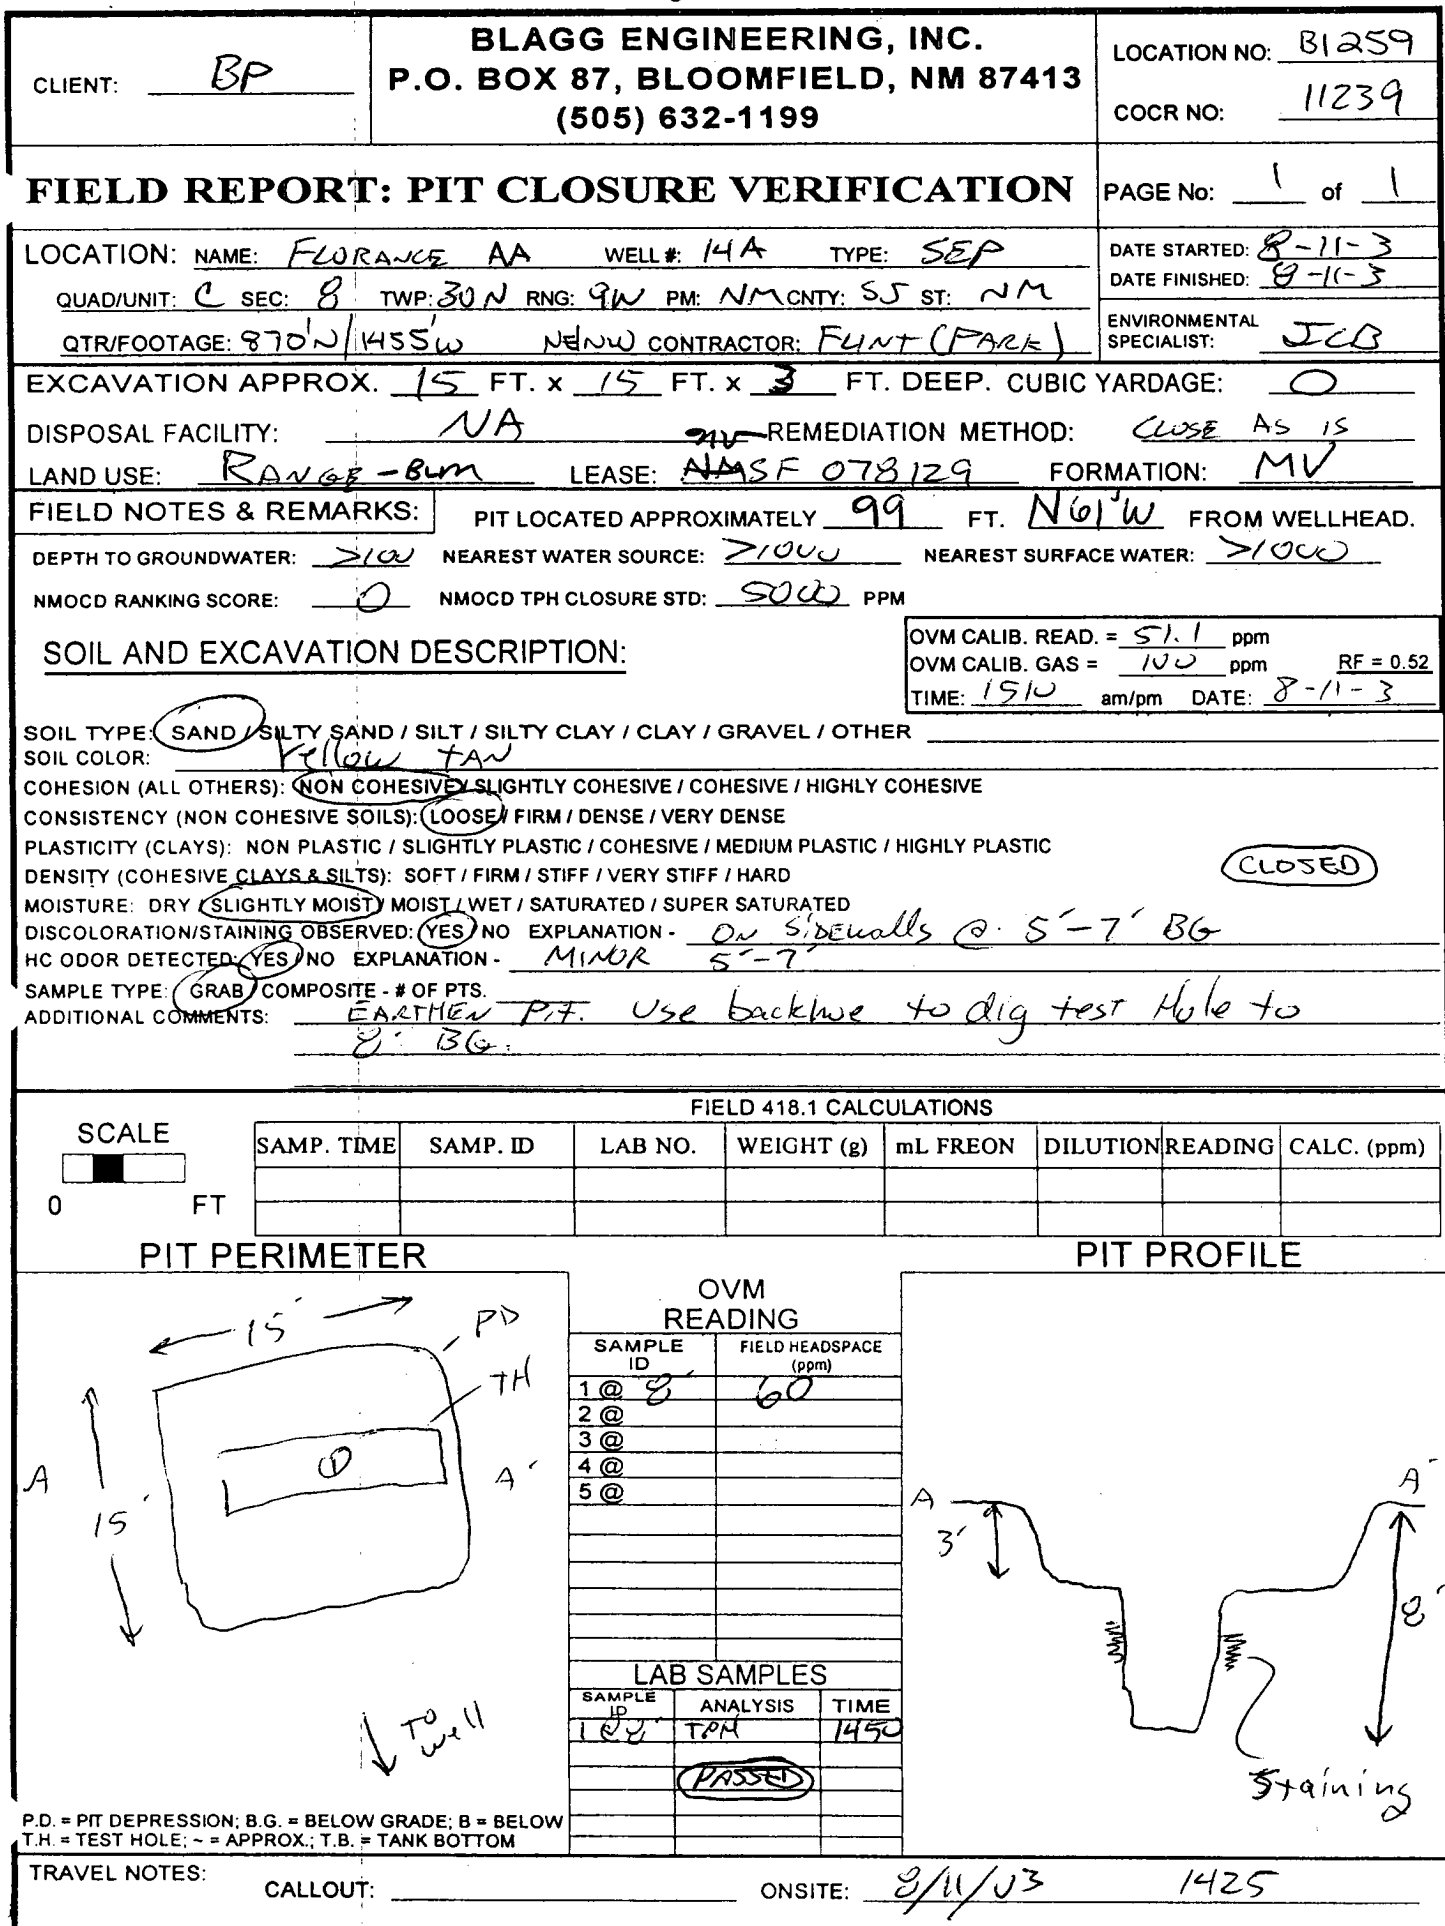 CLIENT: BP
BLAGG ENGINEERING, INC.
P.O. BOX 87, BLOOMFIELD, NM 87413
(505) 632-1199
LOCATION NO: B1259
COCR NO: 11239
FIELD REPORT: PIT CLOSURE VERIFICATION
PAGE No: 1 of 1
LOCATION: NAME: FLORANCE AA WELL #: 14A TYPE: SEP
QUAD/UNIT: C SEC: 8 TWP: 30N RNG: 9W PM: NM CNTY: SJ ST: NM
QTR/FOOTAGE: 870'N/1455'W NENW CONTRACTOR: FLINT (PARK)
DATE STARTED: 8-11-3
DATE FINISHED: 8-11-3
ENVIRONMENTAL
SPECIALIST: JCB
EXCAVATION APPROX. 15 FT. x 15 FT. x 3 FT. DEEP. CUBIC YARDAGE: 0
DISPOSAL FACILITY: NA REMEDIATION METHOD: CLOSE AS IS
LAND USE: RANGE - BLM LEASE: SF 078129 FORMATION: MV
FIELD NOTES & REMARKS: PIT LOCATED APPROXIMATELY 99 FT. N61°W FROM WELLHEAD.
DEPTH TO GROUNDWATER: >100 NEAREST WATER SOURCE: >1000 NEAREST SURFACE WATER: >1000
NMOCD RANKING SCORE: 0 NMOCD TPH CLOSURE STD: 5000 PPM
SOIL AND EXCAVATION DESCRIPTION:
OVM CALIB. READ. = 51.1 ppm
OVM CALIB. GAS = 100 ppm RF = 0.52
TIME: 1510 am/pm DATE: 8-11-3
SOIL TYPE: SAND / SILTY SAND / SILT / SILTY CLAY / CLAY / GRAVEL / OTHER
SOIL COLOR: Yellow TAN
COHESION (ALL OTHERS): NON COHESIVE / SLIGHTLY COHESIVE / COHESIVE / HIGHLY COHESIVE
CONSISTENCY (NON COHESIVE SOILS): LOOSE / FIRM / DENSE / VERY DENSE
PLASTICITY (CLAYS): NON PLASTIC / SLIGHTLY PLASTIC / COHESIVE / MEDIUM PLASTIC / HIGHLY PLASTIC
DENSITY (COHESIVE CLAYS & SILTS): SOFT / FIRM / STIFF / VERY STIFF / HARD
CLOSED
MOISTURE: DRY / SLIGHTLY MOIST / MOIST / WET / SATURATED / SUPER SATURATED
DISCOLORATION/STAINING OBSERVED: YES / NO EXPLANATION - ON SIDEWALLS @ 5'-7' BG
HC ODOR DETECTED: YES / NO EXPLANATION - MINOR 5'-7'
SAMPLE TYPE: GRAB / COMPOSITE - # OF PTS.
ADDITIONAL COMMENTS: EARTHEN Pit. Use backhoe to dig test Hole to
8' BG.
FIELD 418.1 CALCULATIONS
SCALE
0 FT
SAMP. TIME SAMP. ID LAB NO. WEIGHT (g) mL FREON DILUTION READING CALC. (ppm)
PIT PERIMETER
15'
PD
TH
1
A
A'
15'
To well
P.D. = PIT DEPRESSION; B.G. = BELOW GRADE; B = BELOW
T.H. = TEST HOLE; ~ = APPROX.; T.B. = TANK BOTTOM
OVM
READING
SAMPLE ID FIELD HEADSPACE (ppm)
1 @ 8' 60
2 @
3 @
4 @
5 @
LAB SAMPLES
SAMPLE ID ANALYSIS TIME
1@8' TPH 1450
PASSED
PIT PROFILE
A
A'
3'
8'
Staining
TRAVEL NOTES: CALLOUT: ONSITE: 8/11/03 1425